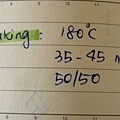 aking: 180°C
35-45 m
50/50